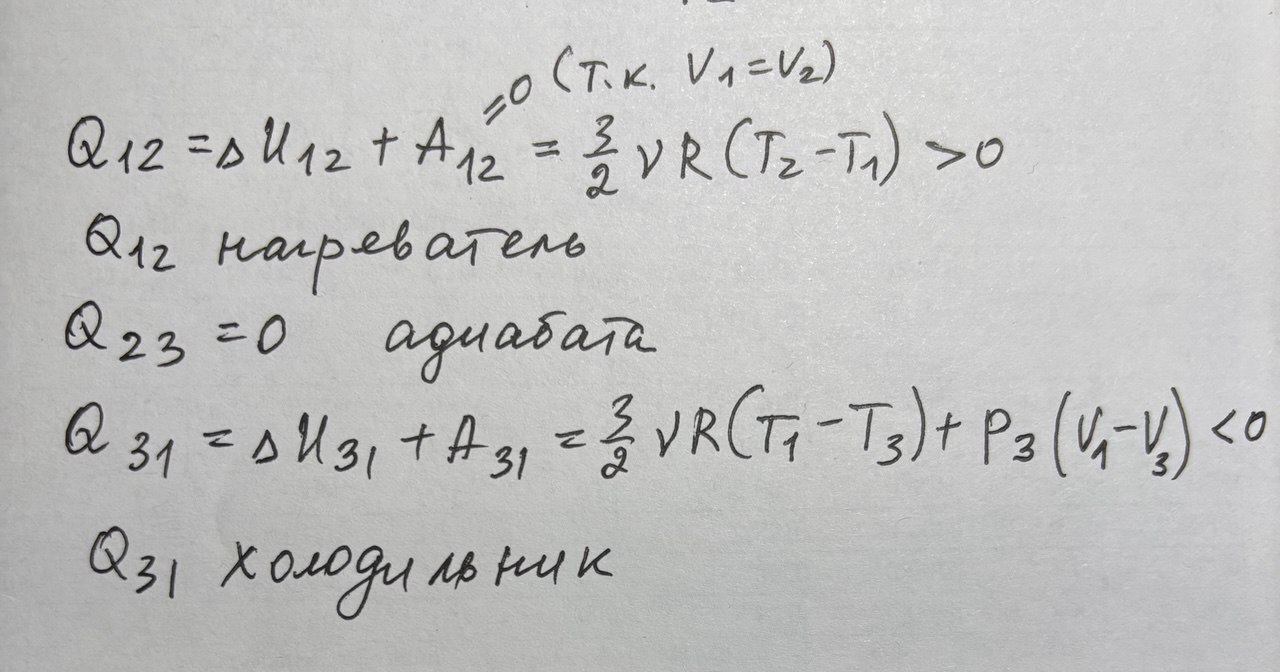 =0 (т.к. V₁=V₂)
Q₁₂ = ΔU₁₂ + A₁₂ = 3/2 νR(T₂-T₁) >0
Q₁₂ нагреватель
Q₂₃ =0 адиабата
Q₃₁ = ΔU₃₁ + A₃₁ = 3/2 νR(T₁-T₃)+ P₃(V₁-V₃) <0
Q₃₁ холодильник